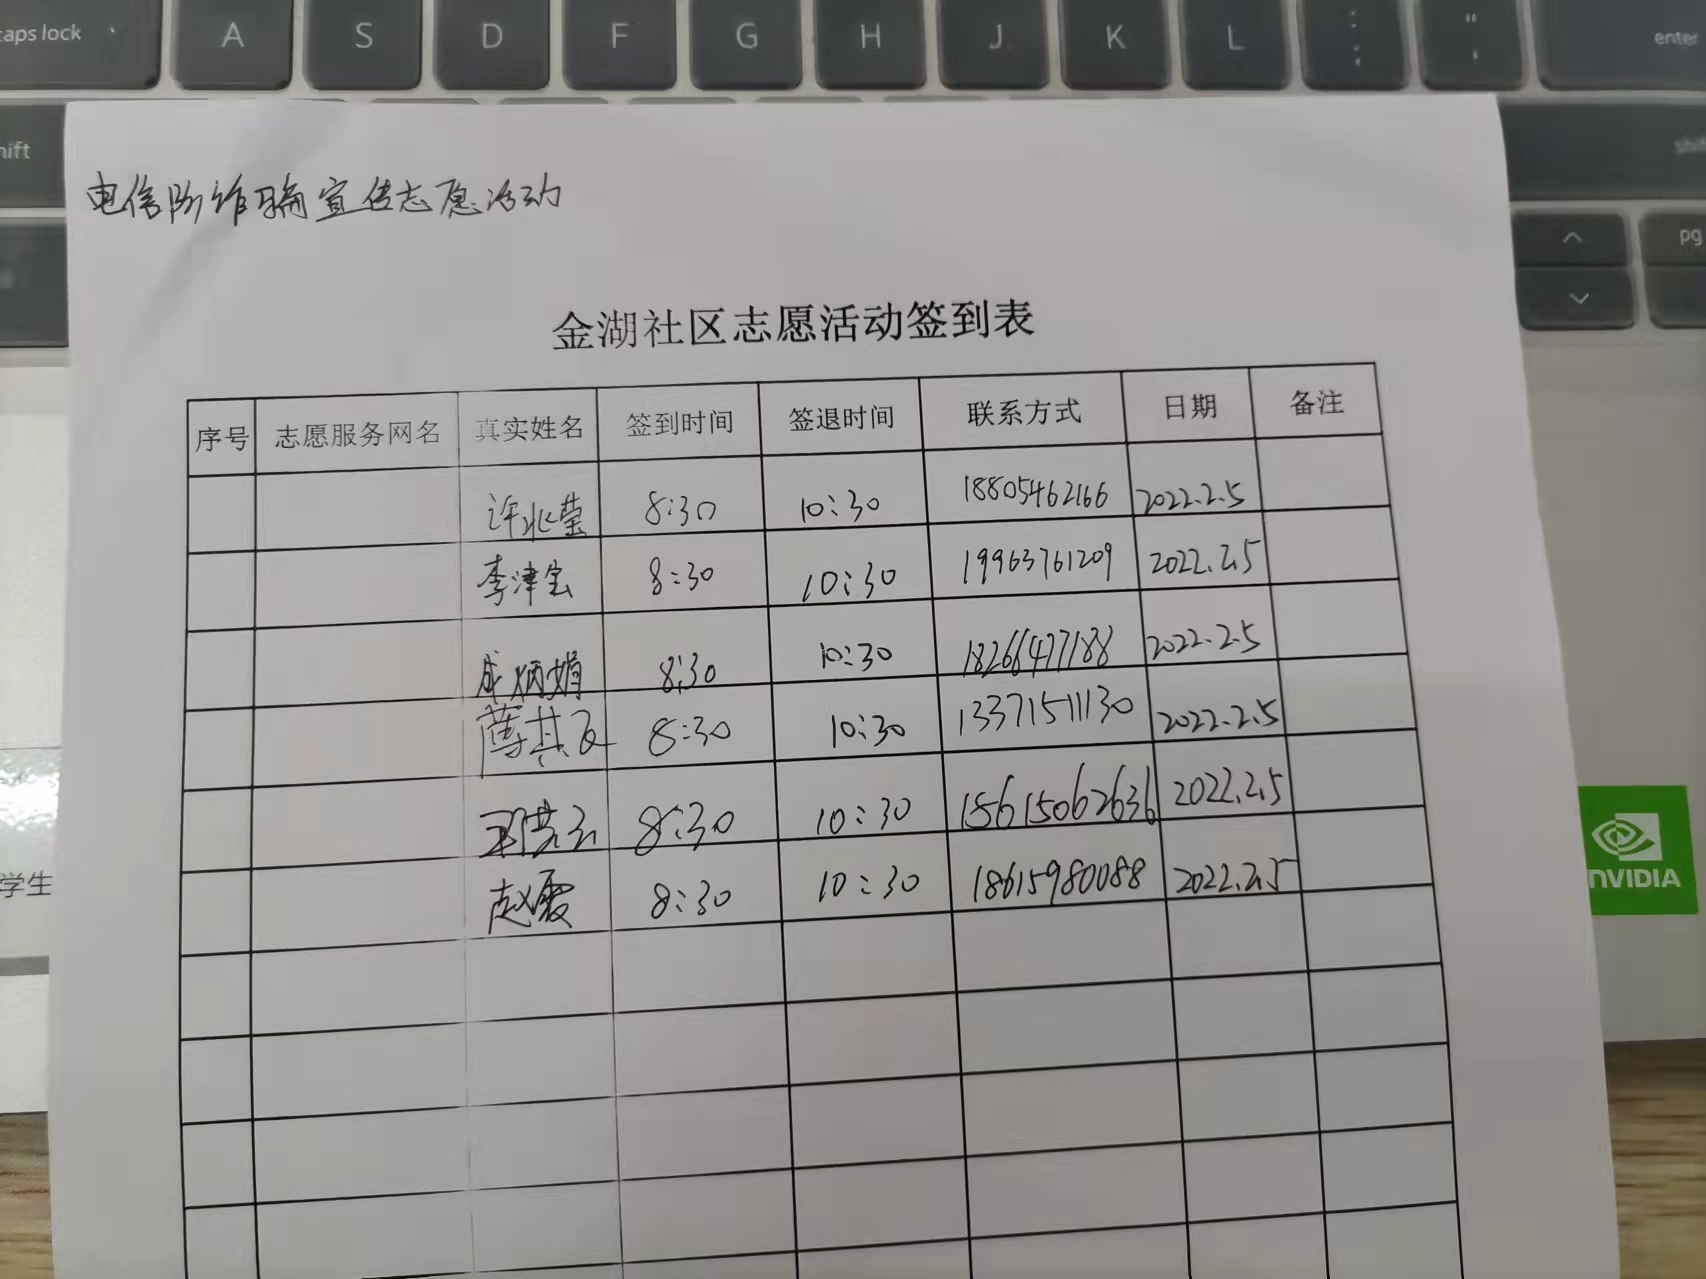 caps lock
A S D F G H J K L : ; " ' enter
shift
shift
电信防诈骗宣传志愿活动
pg
金湖社区志愿活动签到表
序号 志愿服务网名 真实姓名 签到时间 签退时间 联系方式 日期 备注
许兆莹 8:30 10:30 18805462166 2022.2.5
李津宝 8:30 10:30 19963761209 2022.2.5
成炳娟 8:30 10:30 18266477188 2022.2.5
薄其友 8:30 10:30 13371511130 2022.2.5
8:30 10:30 15615062636 2022.2.5
赵霞 8:30 10:30 18615980088 2022.2.5
学生
NVIDIA